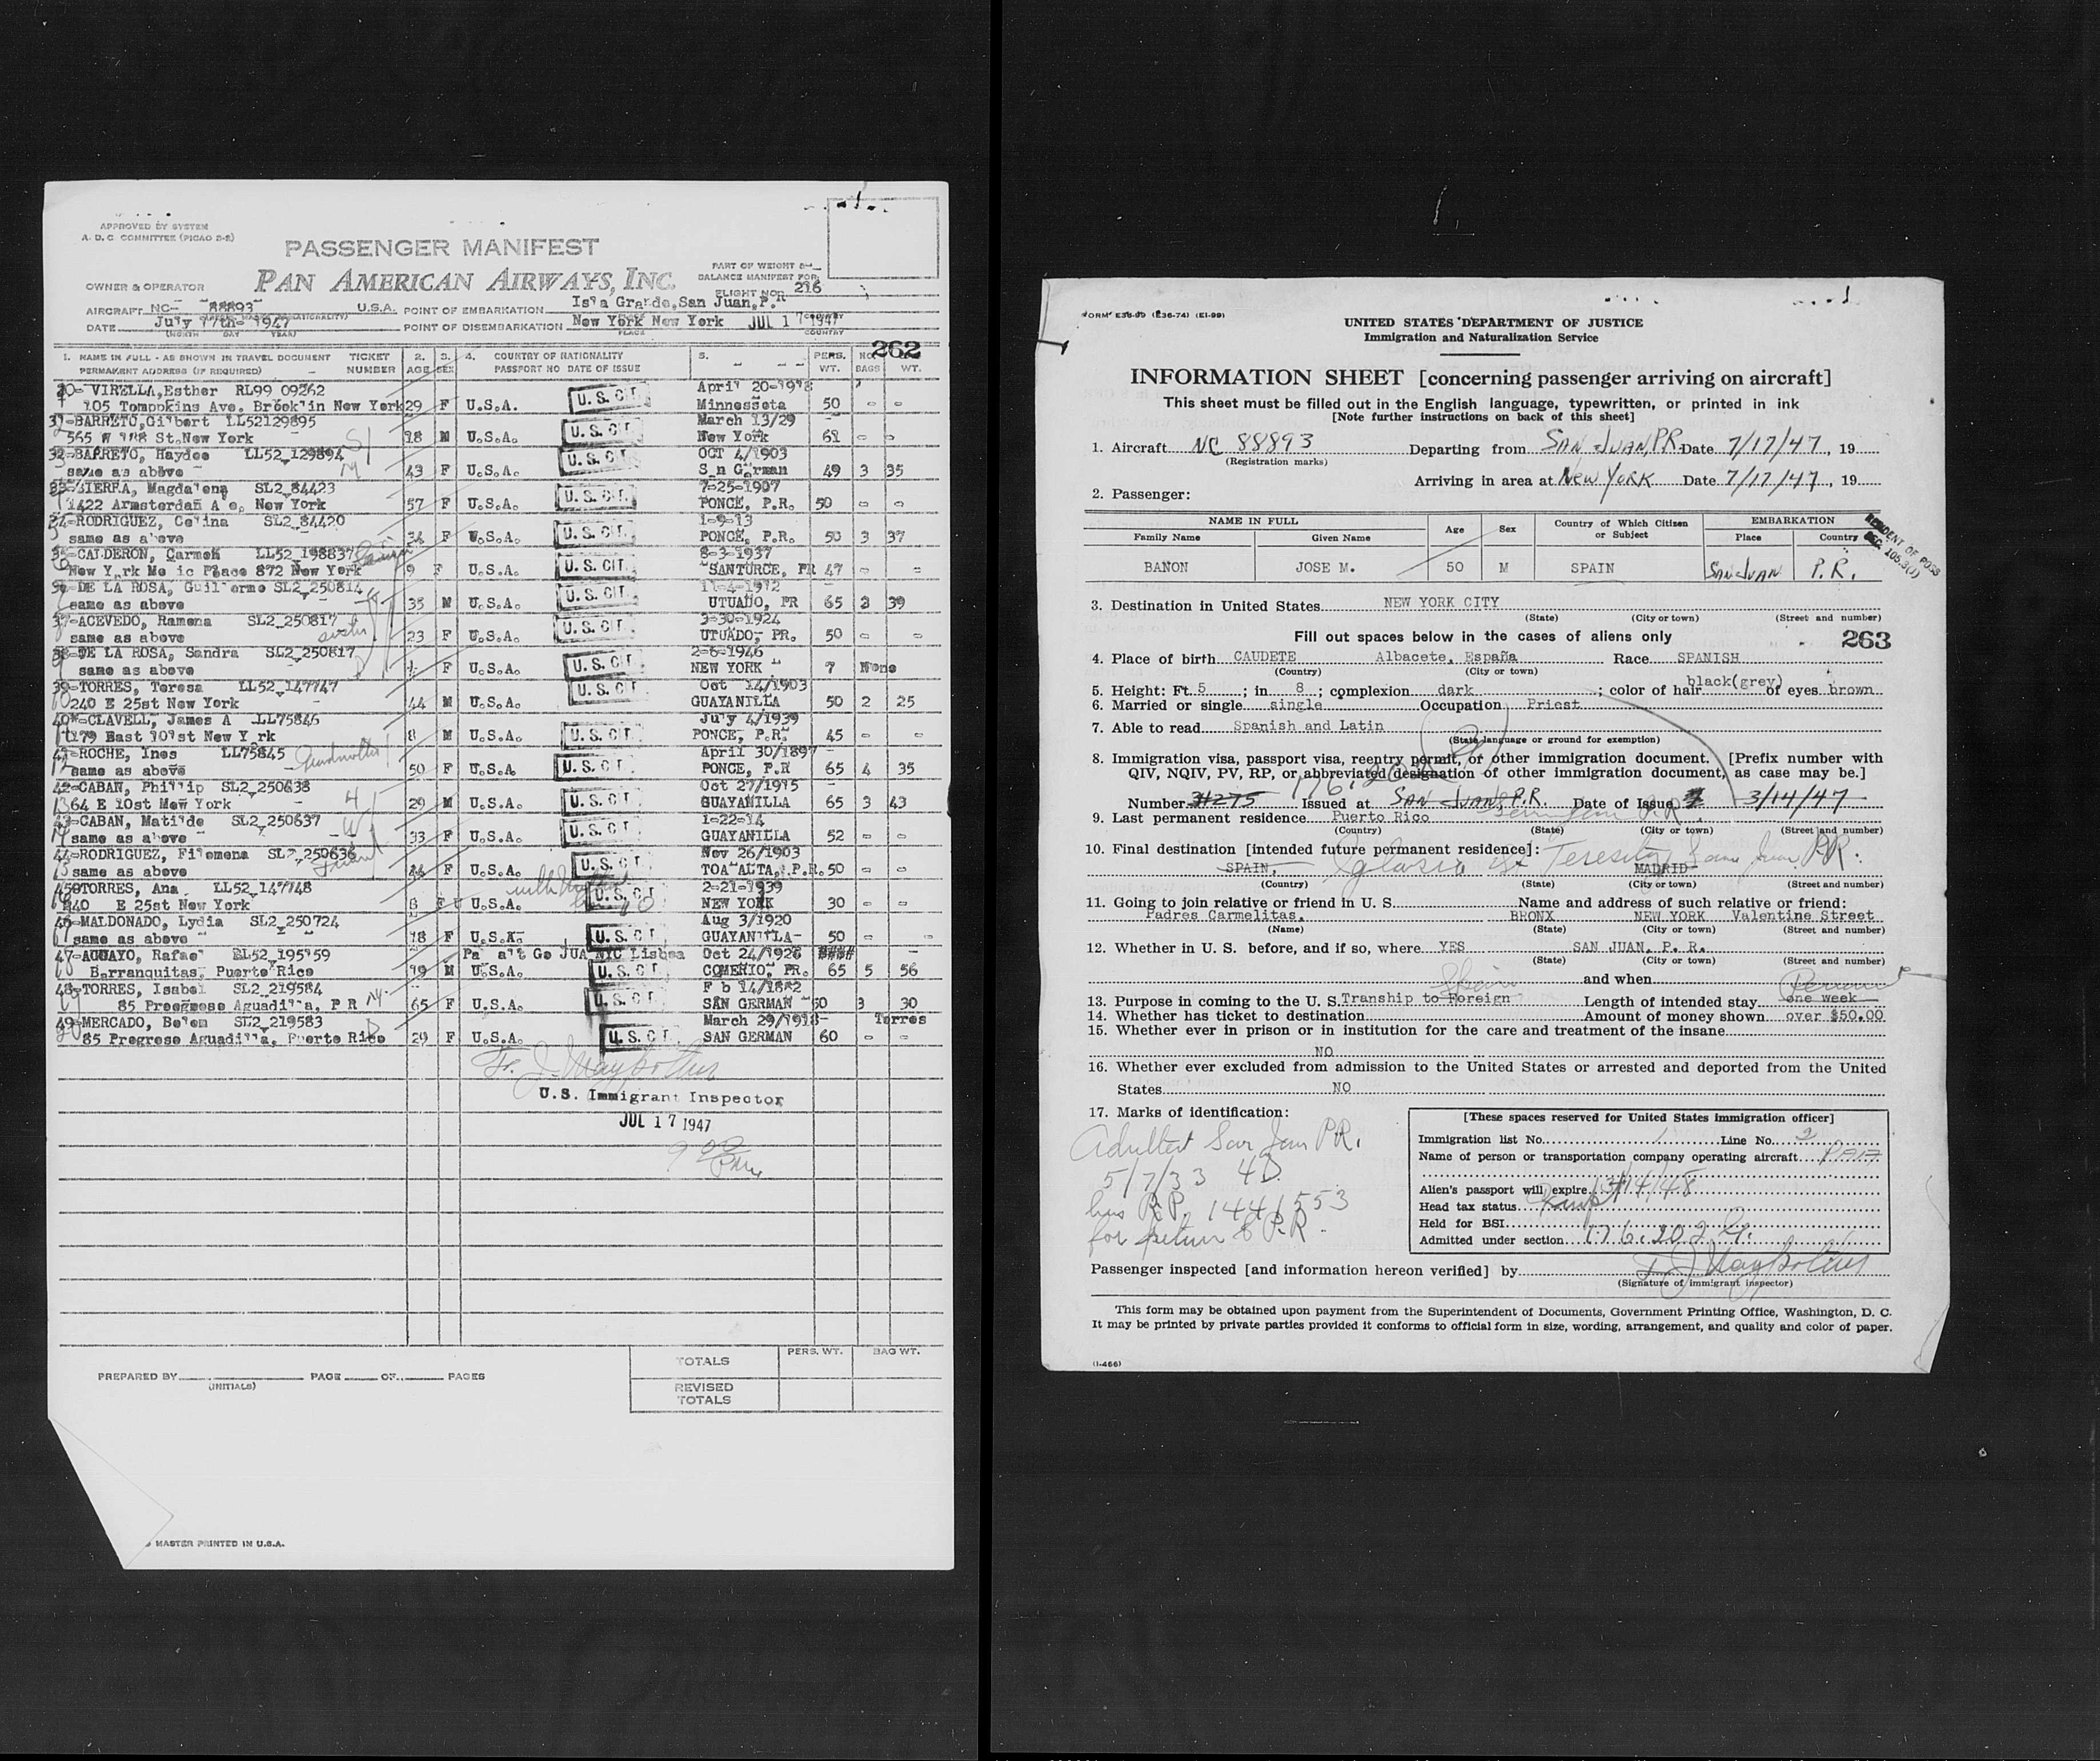 APPROVED BY SYSTEM
A. D. C COMMITTEE (PICAO 2-2)
PASSENGER MANIFEST
PAN AMERICAN AIRWAYS, INC.
PART OF WEIGHT &
BALANCE MANIFEST FOR
FLIGHT NO. 216
OWNER & OPERATOR
AIRCRAFT NC- 88893 U.S.A. POINT OF EMBARKATION Isla Grande, San Juan, P.R
DATE July 17th- 1947 POINT OF DISEMBARKATION New York New York JUL 17 1947
262
1. NAME IN FULL - AS SHOWN IN TRAVEL DOCUMENT TICKET 2. 3. 4. COUNTRY OF NATIONALITY 5. PERS. NO.
PERMANENT ADDRESS (IF REQUIRED) NUMBER AGE SEX PASSPORT NO DATE OF ISSUE WT. BAGS WT.
30- VIRELLA, Esther RL99 09262 April 20-1918
105 Tomppkins Ave. Brooklin New York 29 F U.S.A. U. S. CIT. Minnesseta 50 - -
31-BARRETO, Gilbert LL52129895 March 13/29
565 W 188 St. New York 18 M U.S.A. U. S. CIT. New York 61 - -
32-BARRETO, Haydee LL52 129894 OCT 4/1903
same as above 43 F U.S.A. U. S. CIT. S n German 49 3 35
33-SIERRA, Magdalena SL2 84423 7-25-1907
1422 Armsterdan A e, New York 57 F U.S.A. U. S. CIT. PONCE, P.R. 50 - -
34-RODRIGUEZ, Celina SL2 84420 1-9-13
same as above 34 F U.S.A. U. S. CIT. PONCE, P.R. 50 3 37
35-CALDERON, Carmen LL52 198837 8-3-1937
New Y rk Me ic Place 872 New York 9 F U.S.A. U. S. CIT. SANTURCE, PR 47 -
36-DE LA ROSA, Guillermo SL2 250814 11-4-1912
same as above 35 M U.S.A. U. S. CIT. UTUADO, PR 65 3 39
37-ACEVEDO, Ramona SL2 250817 sister 3-30-1924
same as above 23 F U.S.A. U. S. CIT. UTUADO- PR. 50 - -
38-DE LA ROSA, Sandra SL2 250817 2-6-1946
same as above 1 F U.S.A. U. S. CIT. NEW YORK 7 None
39-TORRES, Teresa LL52 147747 Oct 14/1903
240 E 25st New York 44 M U.S.A. U. S. CIT. GUAYANILLA 50 2 25
40-CLAVELL, James A LL75846 July 4/1939
179 East 101st New Y rk 8 M U.S.A. U. S. CIT. PONCE, P.R. 45 - -
41-ROCHE, Ines LL75845 Grandmother April 30/1897
same as above 50 F U.S.A U. S. CIT. PONCE, P.R 65 4 35
42-CABAN, Phillip SL2 250638 Oct 27/1915
64 E 10st Mew York 29 M U.S.A. U. S. CIT. GUAYANILLA 65 3 43
43-CABAN, Matilde SL2 250637 1-22-14
same as above 33 F U.S.A. U. S. CIT. GUAYANILLA 52 - -
44-RODRIGUEZ, Filomena SL2 250636 friend Nov 26/1903
same as above 44 F U.S.A. U. S. CIT. TOA ALTA, P.R. 50 - -
45-TORRES, Ana LL52 147748 with mother 2-21-1939
240 E 25st New York 8 F U.S.A. U. S. CIT. NEW YORK 30 - -
46-MALDONADO, Lydia SL2 250724 Aug 3/1920
same as above 18 F U.S.A. U. S. CIT. GUAYANILLA- 50 - -
47-AGUAYO, Rafael EL52 195159 JUA NYC Lisboa Oct 24/1928 ####
Barranquitas. Puerto Rico 19 M U.S.A. U. S. CIT. COMERIO, PR. 65 5 56
48-TORRES, Isabel SL2 219584 F b 14/1882
85 Preegmese Aguadilla, P R 65 F U.S.A. U. S. CIT. SAN GERMAN 50 3 30
49-MERCADO, Belem SL2 219583 March 29/1918- Torres
85 Progreso Aguadilla, Puerto Rico 29 F U.S.A. U. S. CIT. SAN GERMAN 60 - -
U.S. Immigrant Inspector
JUL 17 1947
9 00 PM
PERS. WT. BAG WT.
TOTALS
REVISED
TOTALS
PREPARED BY (INITIALS) PAGE OF PAGES
MASTER PRINTED IN U.S.A.
FORM E36-99 (E36-74) (E1-99)
UNITED STATES DEPARTMENT OF JUSTICE
Immigration and Naturalization Service
INFORMATION SHEET [concerning passenger arriving on aircraft]
This sheet must be filled out in the English language, typewritten, or printed in ink
[Note further instructions on back of this sheet]
1. Aircraft NC 88893 Departing from SAN JUAN, P.R. Date 7/17/47, 19
(Registration marks)
Arriving in area at NEW YORK Date 7/17/47, 19
2. Passenger:
NAME IN FULL Age Sex Country of Which Citizen or Subject EMBARKATION
Family Name Given Name Place Country
BANON JOSE M. 50 M SPAIN SAN JUAN P.R.
3. Destination in United States NEW YORK CITY
(State) (City or town) (Street and number)
Fill out spaces below in the cases of aliens only 263
4. Place of birth CAUDETE Albacete, España Race SPANISH
(Country) (City or town)
5. Height: Ft. 5; in 8; complexion dark; color of hair black(grey) of eyes brown
6. Married or single single Occupation Priest
7. Able to read Spanish and Latin
(State language or ground for exemption)
8. Immigration visa, passport visa, reentry permit, or other immigration document. [Prefix number with
QIV, NQIV, PV, RP, or abbreviated designation of other immigration document, as case may be.]
Number 31275 Issued at SAN JUAN P.R. Date of Issue 3/14/47
9. Last permanent residence Puerto Rico San Juan P.R.
(Country) (State) (City or town) (Street and number)
10. Final destination [intended future permanent residence]:
SPAIN, Iglesia St Teresita, San Juan P.R. MADRID
(Country) (State) (City or town) (Street and number)
11. Going to join relative or friend in U. S. Name and address of such relative or friend:
Padres Carmelitas. BRONX NEW YORK Valentine Street
(Name) (State) (City or town) (Street and number)
12. Whether in U. S. before, and if so, where YES SAN JUAN, P. R.
(State) (City or town) (Street and number)
and when
13. Purpose in coming to the U. S. Tranship to Foreign Spain Length of intended stay one week
14. Whether has ticket to destination Amount of money shown over $50.00
15. Whether ever in prison or in institution for the care and treatment of the insane
NO
16. Whether ever excluded from admission to the United States or arrested and deported from the United
States NO
17. Marks of identification:
Admitted San Juan P.R.
5/7/33 4D
has R.P. 1441553
for return to P.R.
[These spaces reserved for United States immigration officer]
Immigration list No. 1 Line No. 2
Name of person or transportation company operating aircraft
Alien's passport will expire 3/14/48
Head tax status
Held for BSI
Admitted under section 176.202
Passenger inspected [and information hereon verified] by
(Signature of immigrant inspector)
This form may be obtained upon payment from the Superintendent of Documents, Government Printing Office, Washington, D. C.
It may be printed by private parties provided it conforms to official form in size, wording, arrangement, and quality and color of paper.
(1-466)